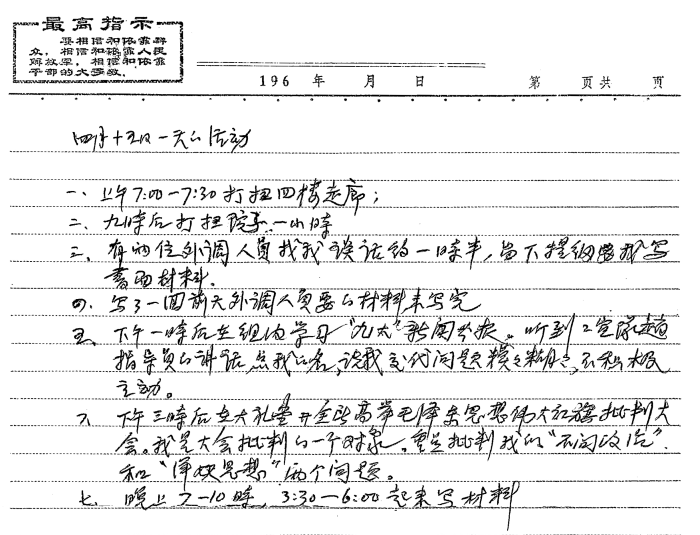 最高指示
要相信和依靠群
众，相信和依靠人民
解放军，相信和依靠
干部的大多数。
196 年 月 日 第 页共 页
四月十五日一天的活动
一、上午7:00—7:30打扫四楼走廊；
二、九時后打扫院子一小時
三、有两位外调人员找我谈话约一時半，留下提纲要我写
書面材料。
四、写了一面前天外调人员要的材料未写完
五、下午一時后在组内学习“九大”新闻公报。听到工宣队赵
指导员的讲话点我的名，说我交代问题模模糊糊，不积极
主动。
六、下午三時后在大礼堂开全院高举毛泽东思想伟大红旗批判大
会。我是大会批判的一个对象。重点批判我的“不问政治”
和“单纯思想”两个问题。
七、晚上7—10時，3:30—6:00起来写材料